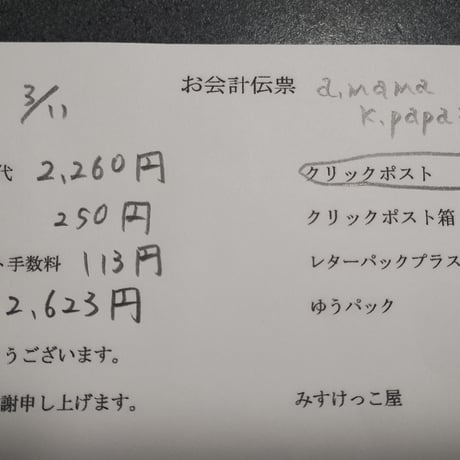 3/11
お会計伝票
a.mama
k.papa
代 2,260円
クリックポスト
250円
クリックポスト箱
ト手数料 113円
レターパックプラス
2,623円
ゆうパック
うございます。
謝申し上げます。
みすけっこ屋